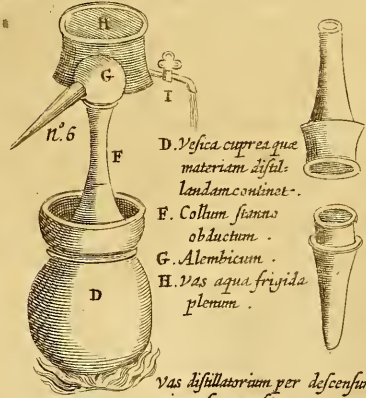 a
H
G
I
n.º 6
F
D. Vesica cuprea quæ
materiam distil-
landam continet.
F. Collum stanno
obductum.
G. Alembicum.
H. Vas aqua frigida
plenum.
D
Vas distillatorium per descensum